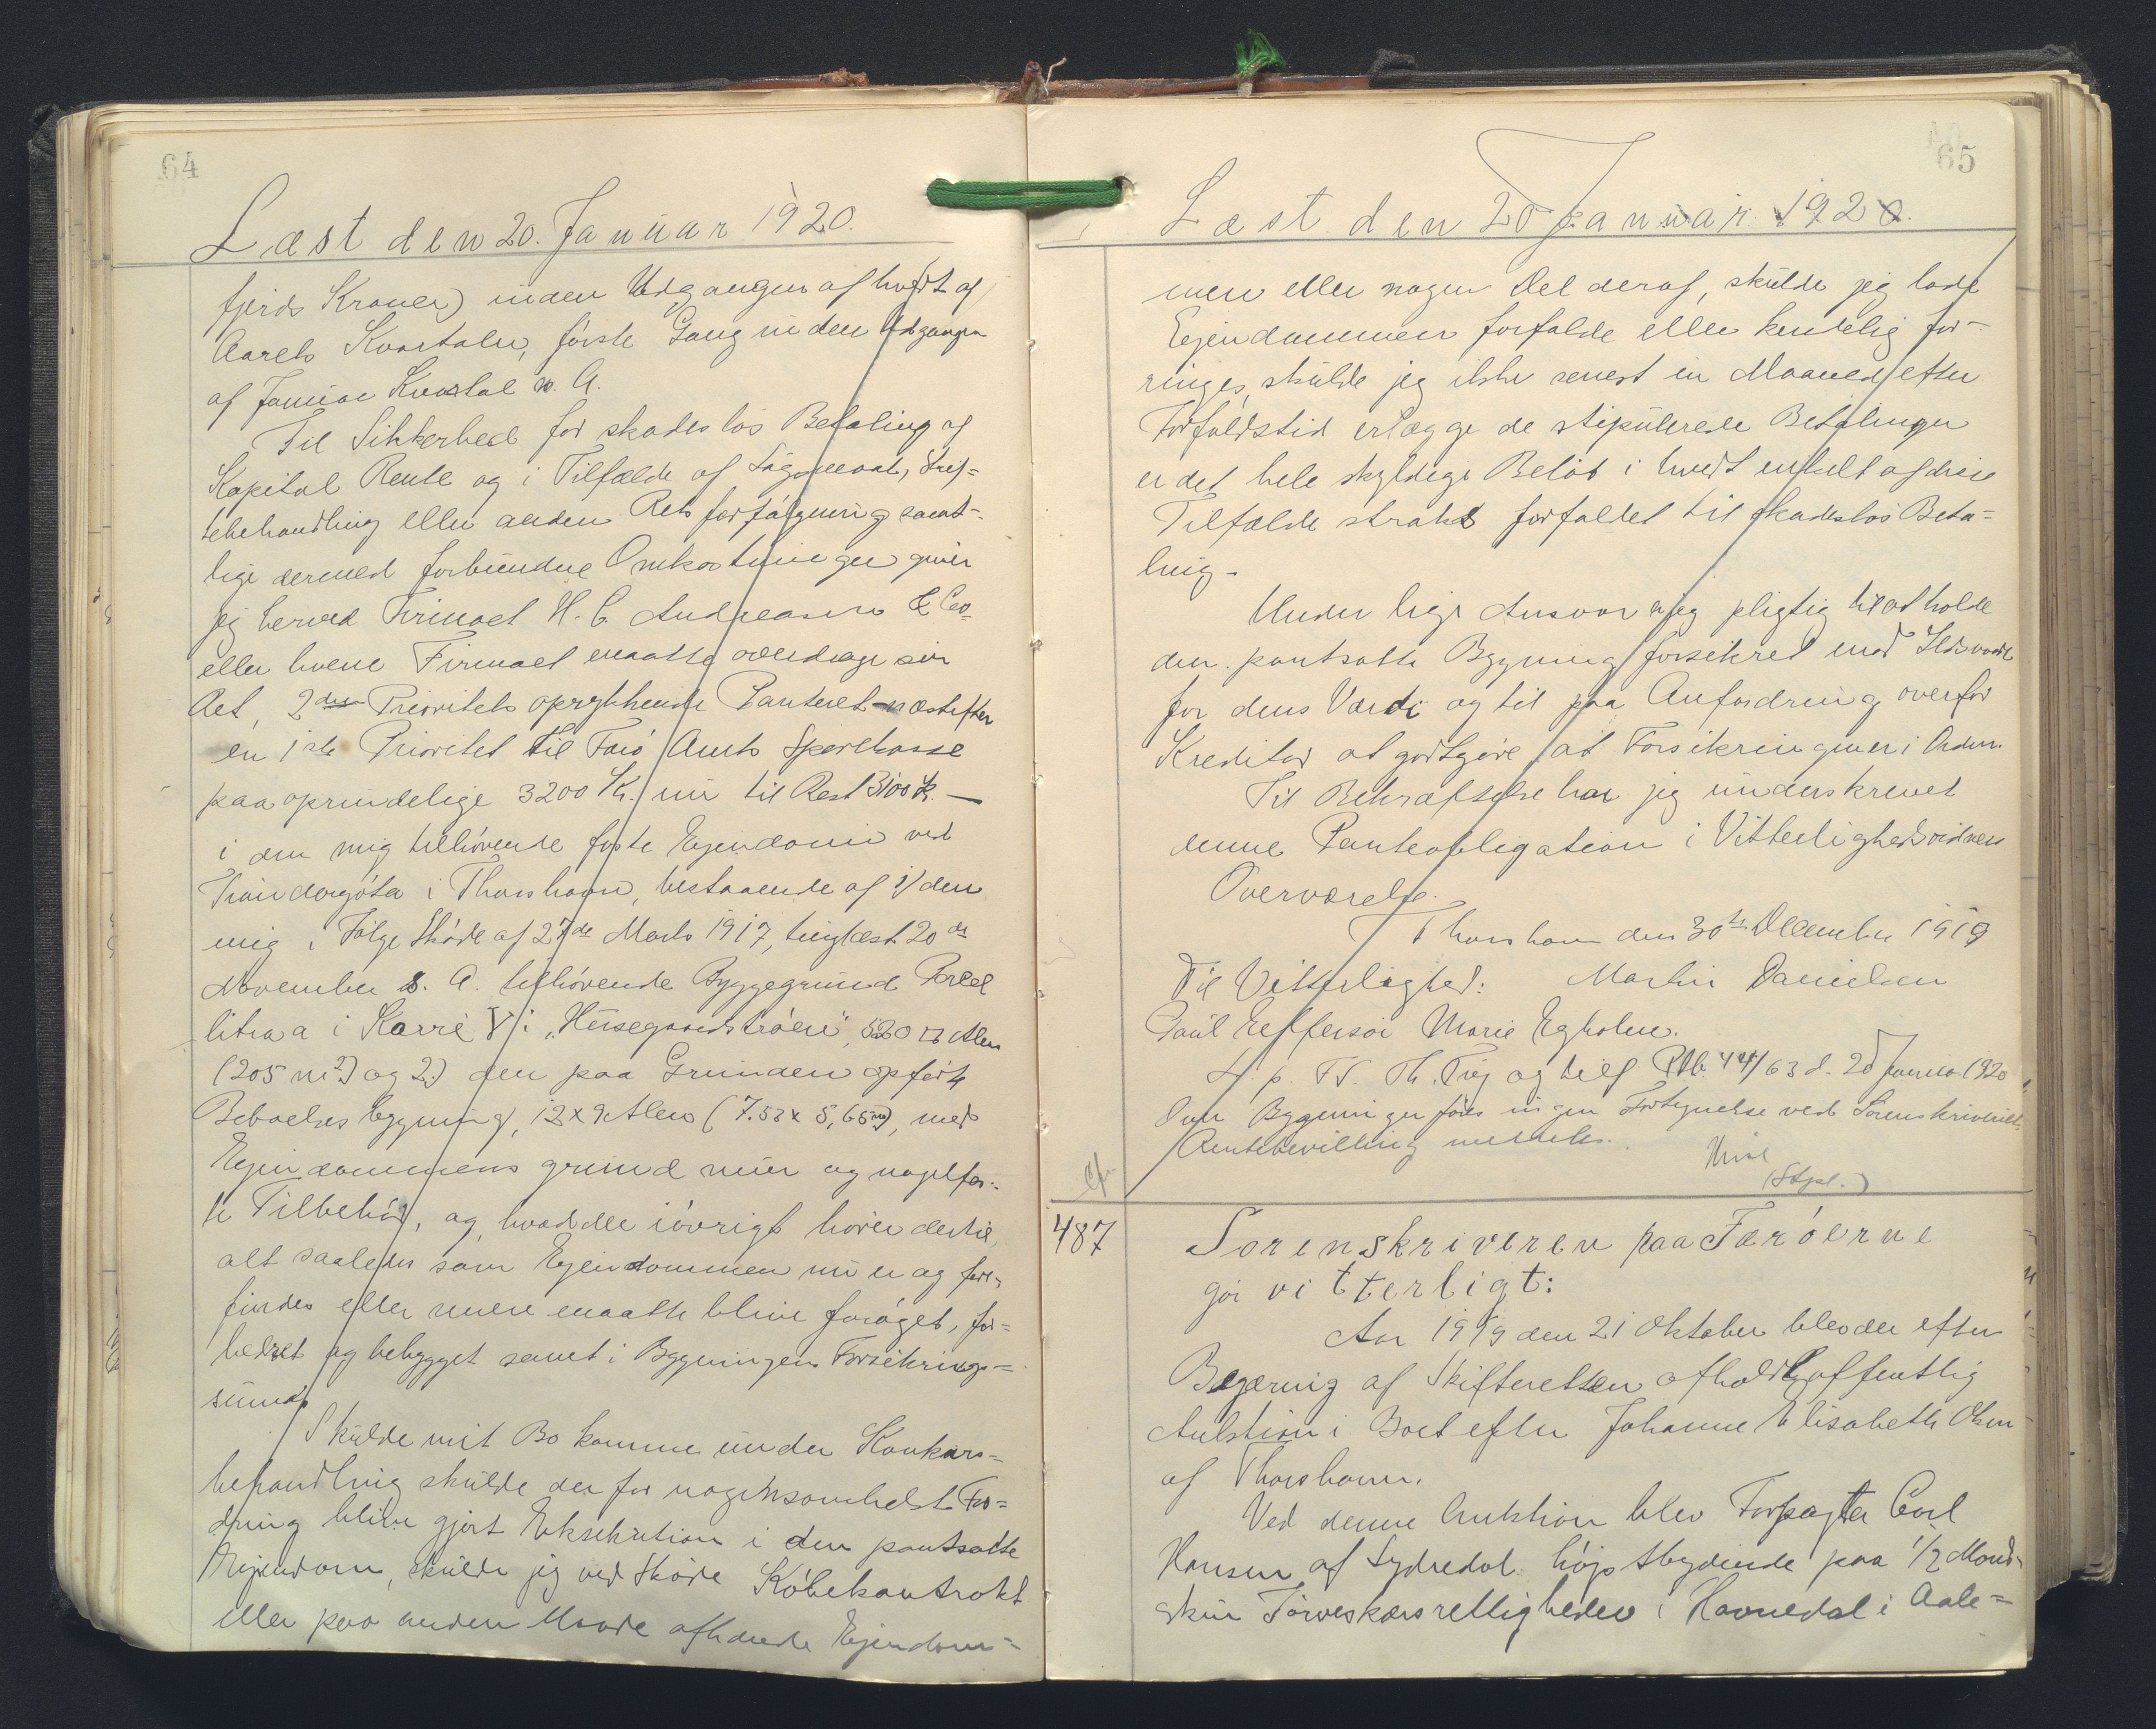 64
Læst den 20. Januar 1920.
fjerds Kroner) inden Udgangen af hvert af
Aarets Kvartaler, første Gang inden Udgangen
af Januar Kvartal n. A.
Til Sikkerhed for skadesløs Betaling af
Kapital Rente og i Tilfælde af Søgsmaal, Skif=
tebehandling eller anden Retsforfølgning samt=
lige dermed forbundne Omkostninger giver
jeg herved Firmaet H. C. Andreasen & Co.
eller hvem Firmaet maatte overdrage sin
Ret, 2den Prioritets oprykkende Panteret næstefter
en 1ste Prioritet til Færø Amts Sparekasse
paa oprindelige 3200 Kr. nu til Rest 3100 Kr. —
i den mig tilhørende faste Ejendom ved
i Thorshavn, bestaaende af 1) den
mig i Følge Skøde af 27de Marts 1917, tinglæst 20de
November s. A. tilhørende Byggegrund Parcel
litra a i Karré V i "Húsegaardstrøen", 520 □ Alen
(205 m²) og 2) den paa Grunden opførte
Beboelsesbygning, 12 x 9 Alen (7.53 x 5,65 m), med
Ejendommens grund mur og nagelfas-
te Tilbehør, og hvad der iøvrigt hører dertil,
alt saaledes som Ejendommen nu er og fore-
findes eller mere maatte blive forøget, for=
bedret og bebygget samt i Bygningens Forsikrings=
sum.
Skulde mit Bo komme under Konkurs=
behandling skulde der for nogensomhelst For=
dring blive gjort Eksekution i den pantsatte
Ejendom, skulde jeg ved Skøde Købekontrakt
eller paa anden Maade afhænde Ejendom=
65
Læst den 20 Januar 1920.
men eller nogen Del deraf, skulde jeg lade
Ejendommen forfalde eller kendelig for-
ringes, skulde jeg ikke senest en Maaned efter
Forfaldstid erlægge de stipulerede Betalinger
er det hele skyldige Beløb i hvert enkelt af disse
Tilfælde straks forfaldet til skadesløs Beta=
ling.
Under lige Ansvar er jeg pligtig til at holde
den pantsatte Bygning forsikret mod Ildsvaade
for dens Værdi og til paa Anfordring overfor
Kreditor at godtgøre at Forsikringen er i Orden.
Til Bekræftelse har jeg underskrevet
denne Panteobligation i Vitterlighedsvidners
Overværelse.
Thorshavn den 30te December 1919
Til Vitterlighed: Martin Danielsen
Marie Egholm.
og Ptb. 44/63 d. 20 Januar 1920
Over Bygninger føres ingen Fortegnelse ved Sorenskriveriet.
Amtsbevilling meddeles.
(Stpl.)
487
Sorenskriveren paa Færøerne
gør vitterligt:
Aar 1919 den 21 Oktober blev der efter
Begæring af Skifteretten afholdt offentlig
Auktion i Boet efter Johanne Elisabeth Olsen
af Thorshavn.
Ved denne Auktion blev Forpagter Carl
Hansen af Sydredal højstbydende paa 1/2 Mands
skur Tørveskærsrettigheder i Havnedal i Aale=